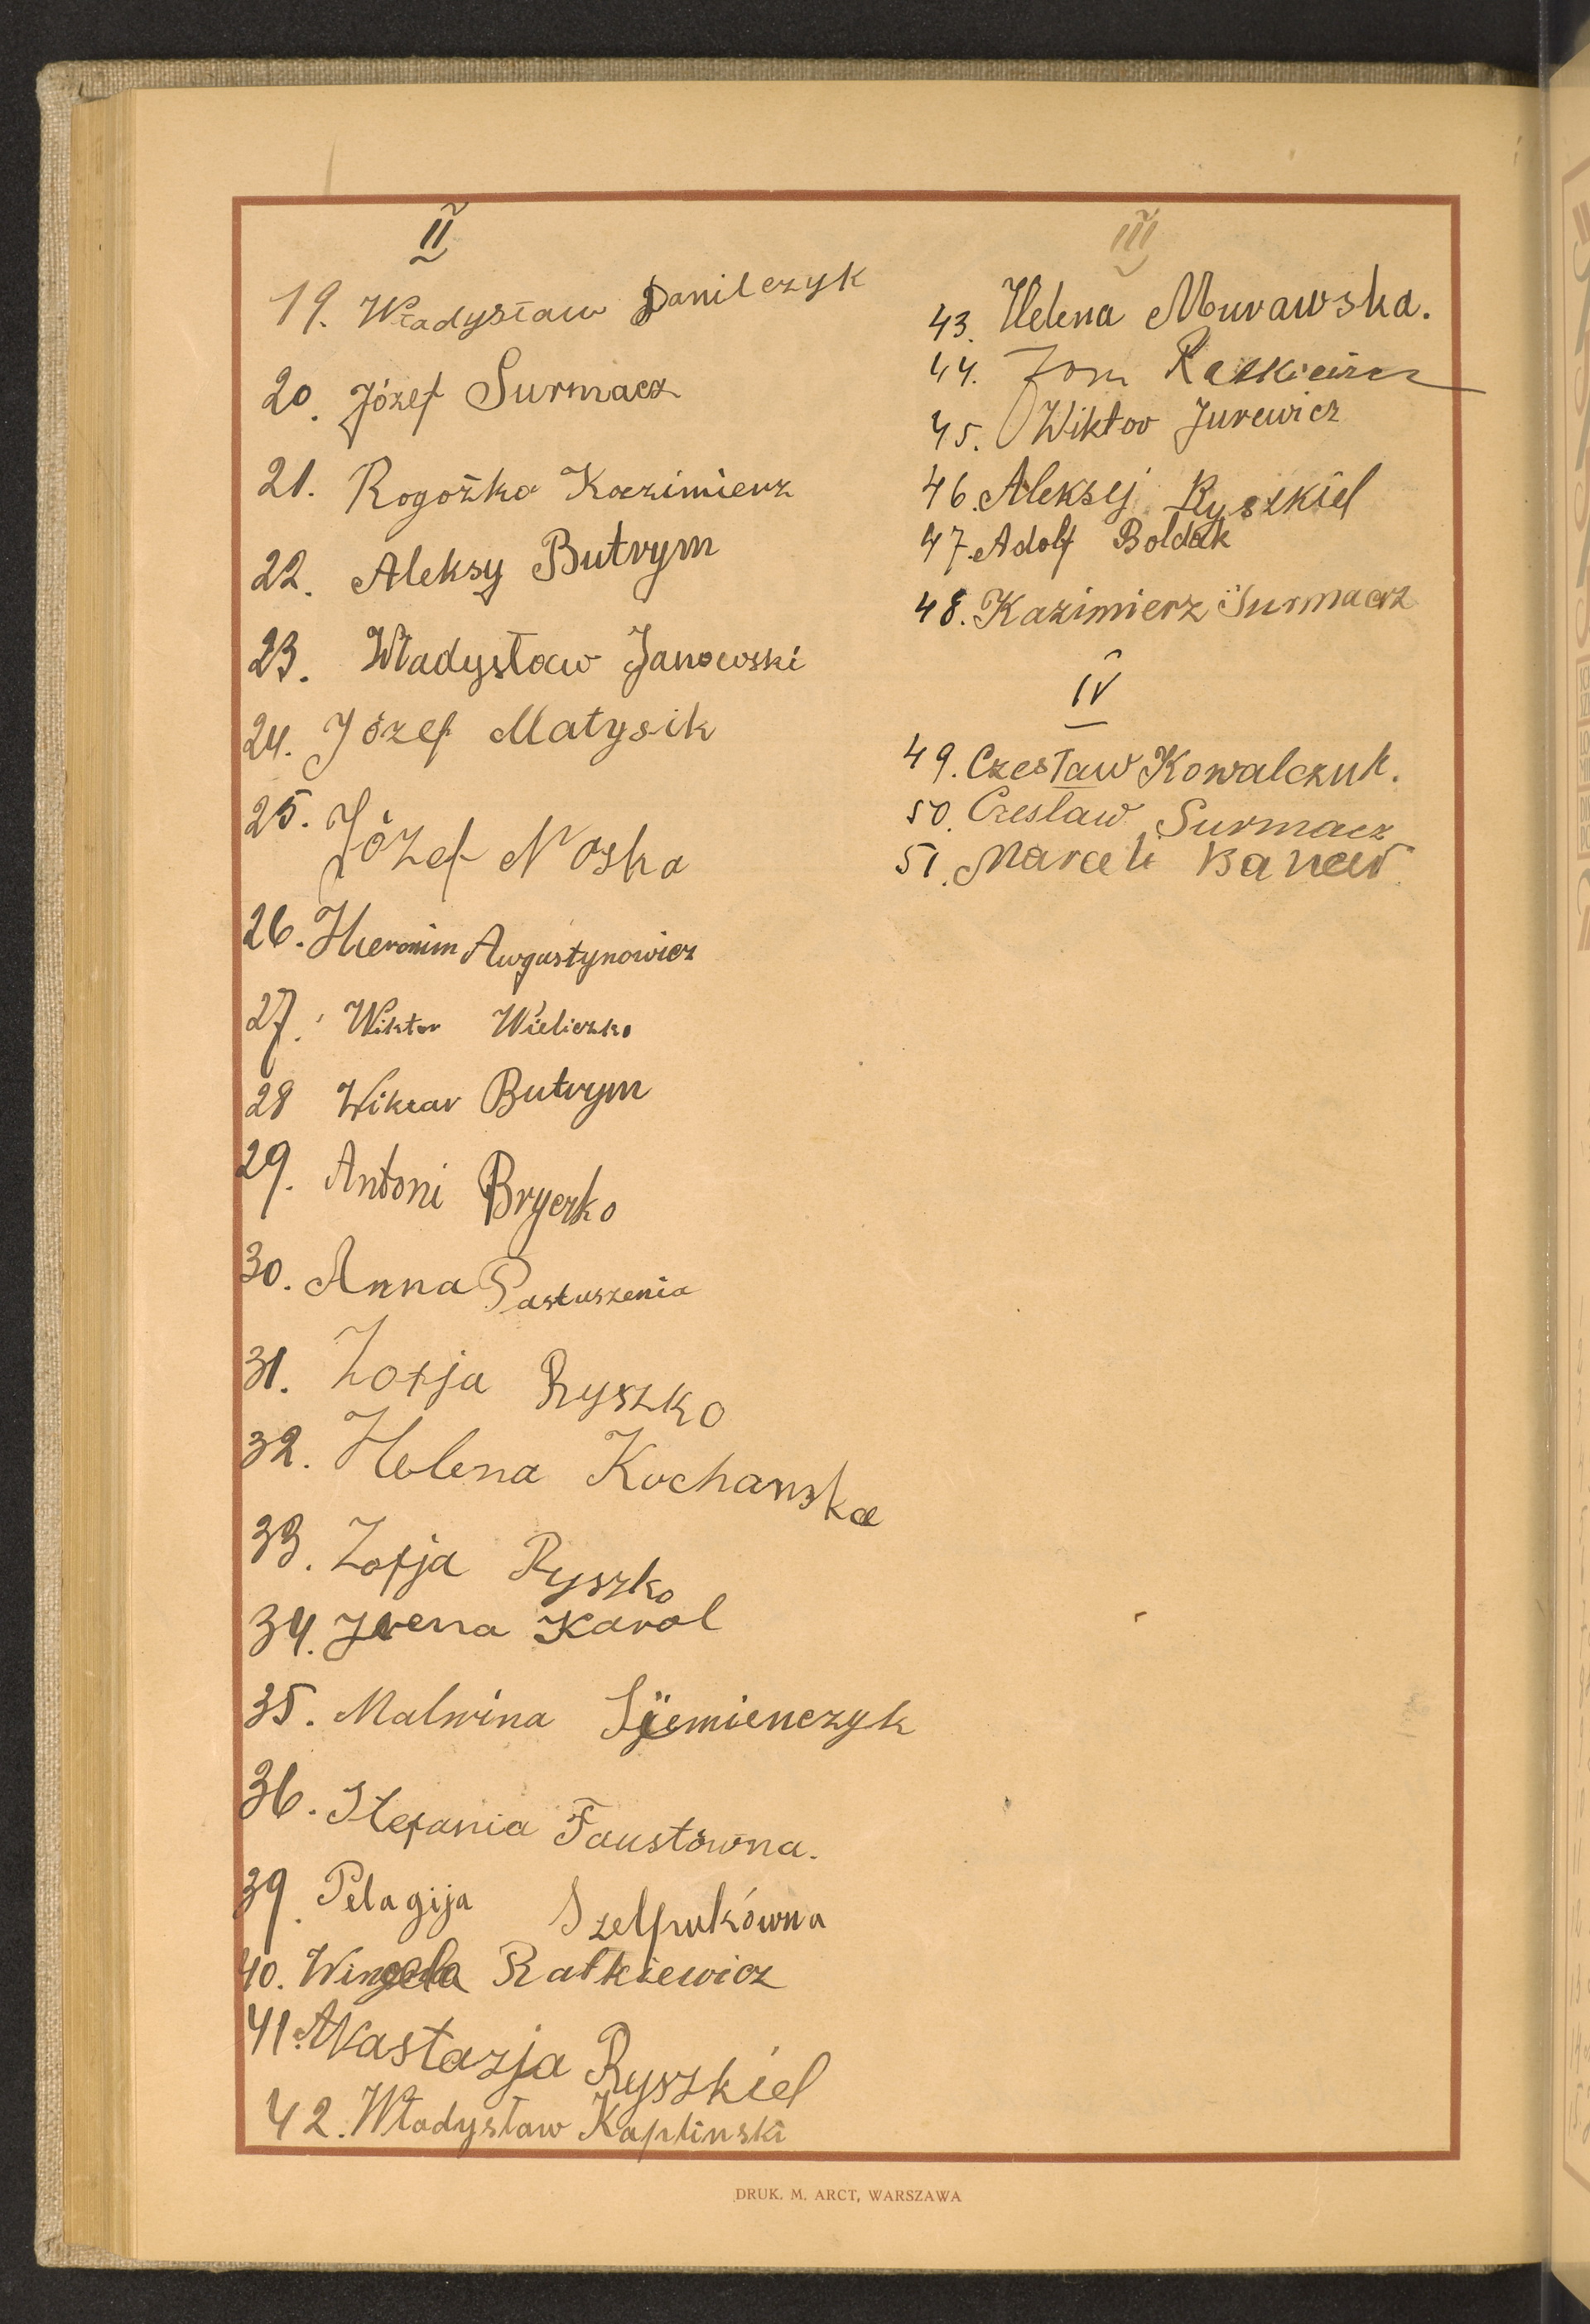 II
19. Władysław Danilczyk
20. Józef Surmacz
21. Rogożko Kazimierz
22. Aleksy Butrym
23. Władysław Janowski
24. Józef Matysik
25. Józef Noska
26. Hieronim Augustynowicz
27. Wiktor Wieliczko
28 Wiktor Butrym
29. Antoni Bryczko
30. Anna Pastuszenia
31. Zofja Ryszko
32. Helena Kochanska
33. Zofja Ryszko
34. Irena Karol
35. Malwina Siemienczyk
36. Stefania Faustówna.
39. Pelagija Szelpukówna
40. Ratkiewicz
41. Nastazja Ryszkiel
42. Władysław Kaplinski
III
43. Helena Murawska.
44.
45. Wiktor Jurewicz
46. Aleksej Ryszkiel
47. Adolf Boldak
48. Kazimierz Surmacz
IV
49. Czesław Kowalczuk.
50. Czesław Surmacz
51. Marceli
DRUK. M. ARCT, WARSZAWA